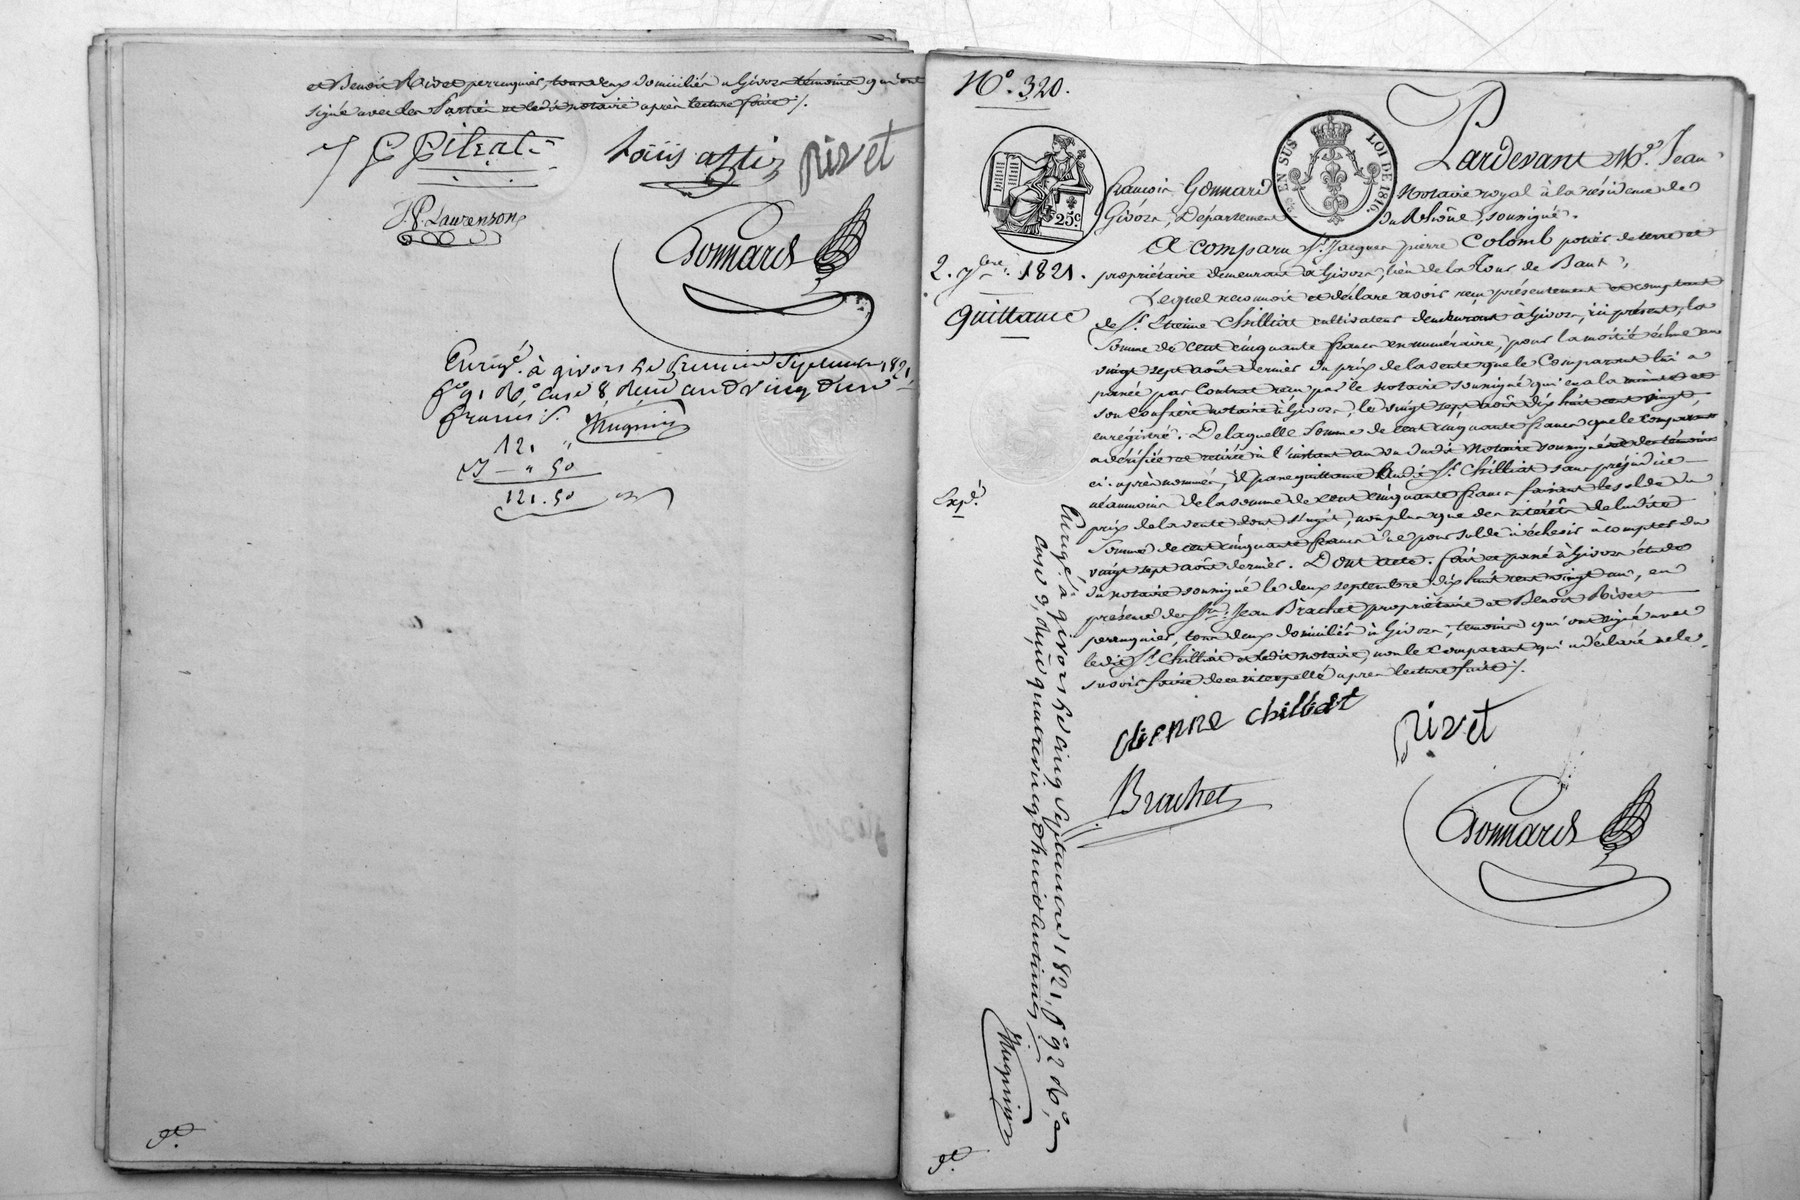 et Benoît Rivet perruquier, tous deux domiciliés à Givors témoins qui ont
signé avec les Parties et ledit notaire après lecture faite ./.
Louis
Rivet
JP Laurenson
Gonnard
Enregé. à givors le premier Septembre 1821
fo. 91 Vo. Case 8, reçu cent vingt un
francs
Hugnin
121 "
" 50
121.50
No. 320.
EN SUS
LOI DE 1816.
25c.
Pardevant Me. Jean
François Gonnard Notaire royal à la résidence de
Givors, Département du Rhône, soussigné.
A comparu Sr. Jacques pierre Colomb potier de terre et
2. 7bre. 1821. propriétaire demeurant à Givors, lieu de la Tour de Bans,
Quittance
Lequel reconnoit et déclare avoir reçu présentement et comptant
de Sr. Etienne Chilliat cultivateur demeurant à Givors, ici présent, la
Somme de cent cinquante francs en numéraire, pour la moitié échue au
vingt sept août dernier du prix de la vente que le Comparant lui a
passée par Contrat reçu par le notaire soussigné qui en a la minute et
son Confrère notaire à Givors, le vingt sept août dix huit cent vingt
enregistré. De laquelle Somme de cent cinquante francs que le comparant
a vérifiée et retirée à l'instant au vu dudit Notaire soussigné et des témoins
ci-après nommés, il passe quittance audit Sr. Chilliat sans préjudice
Expé.
néanmoins de la somme de cent cinquante francs faisant le solde du
prix de la vente dont s'agit, non plus que des intérêts de ladite
Somme de cent cinquante francs due pour solde à échoir à compter du
vingt sept août dernier. Dont acte. fait et passé à Givors étude
du notaire soussigné le deux septembre dix huit cent vingt un, en
présence des Srs. Jean Brachet propriétaire et Benoît Rivet
perruquier, tous deux domiciliés à Givors, témoins qui ont signé avec
ledit Sr. Chilliat et ledit notaire, non le Comparant qui a déclaré ne le
savoir faire de ce interpellé après lecture faite ./.
etienne chilliat
Rivet
Brachet
Gonnard
Enregé. à givors le cinq Septembre 1821, fo. 92 Vo.
Case 3, reçu quatre vingt huit centimes
Hugnin